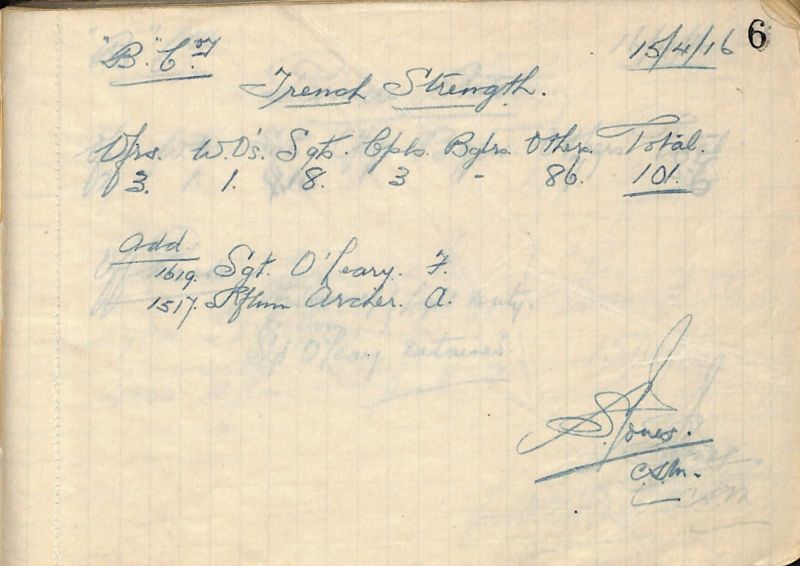 "B" Coy. 15/4/16 6
Trench Strength.
Ofrs. W.O's. Sgts. Cpls. Bglrs. Others. Total.
3. 1. 8. 3 - 86. 101.
Add
1619. Sgt. O'Leary. F.
1517. Rflmn Archer. A.
Sgt O'Leary retained
S. Jones.
C.S.M.